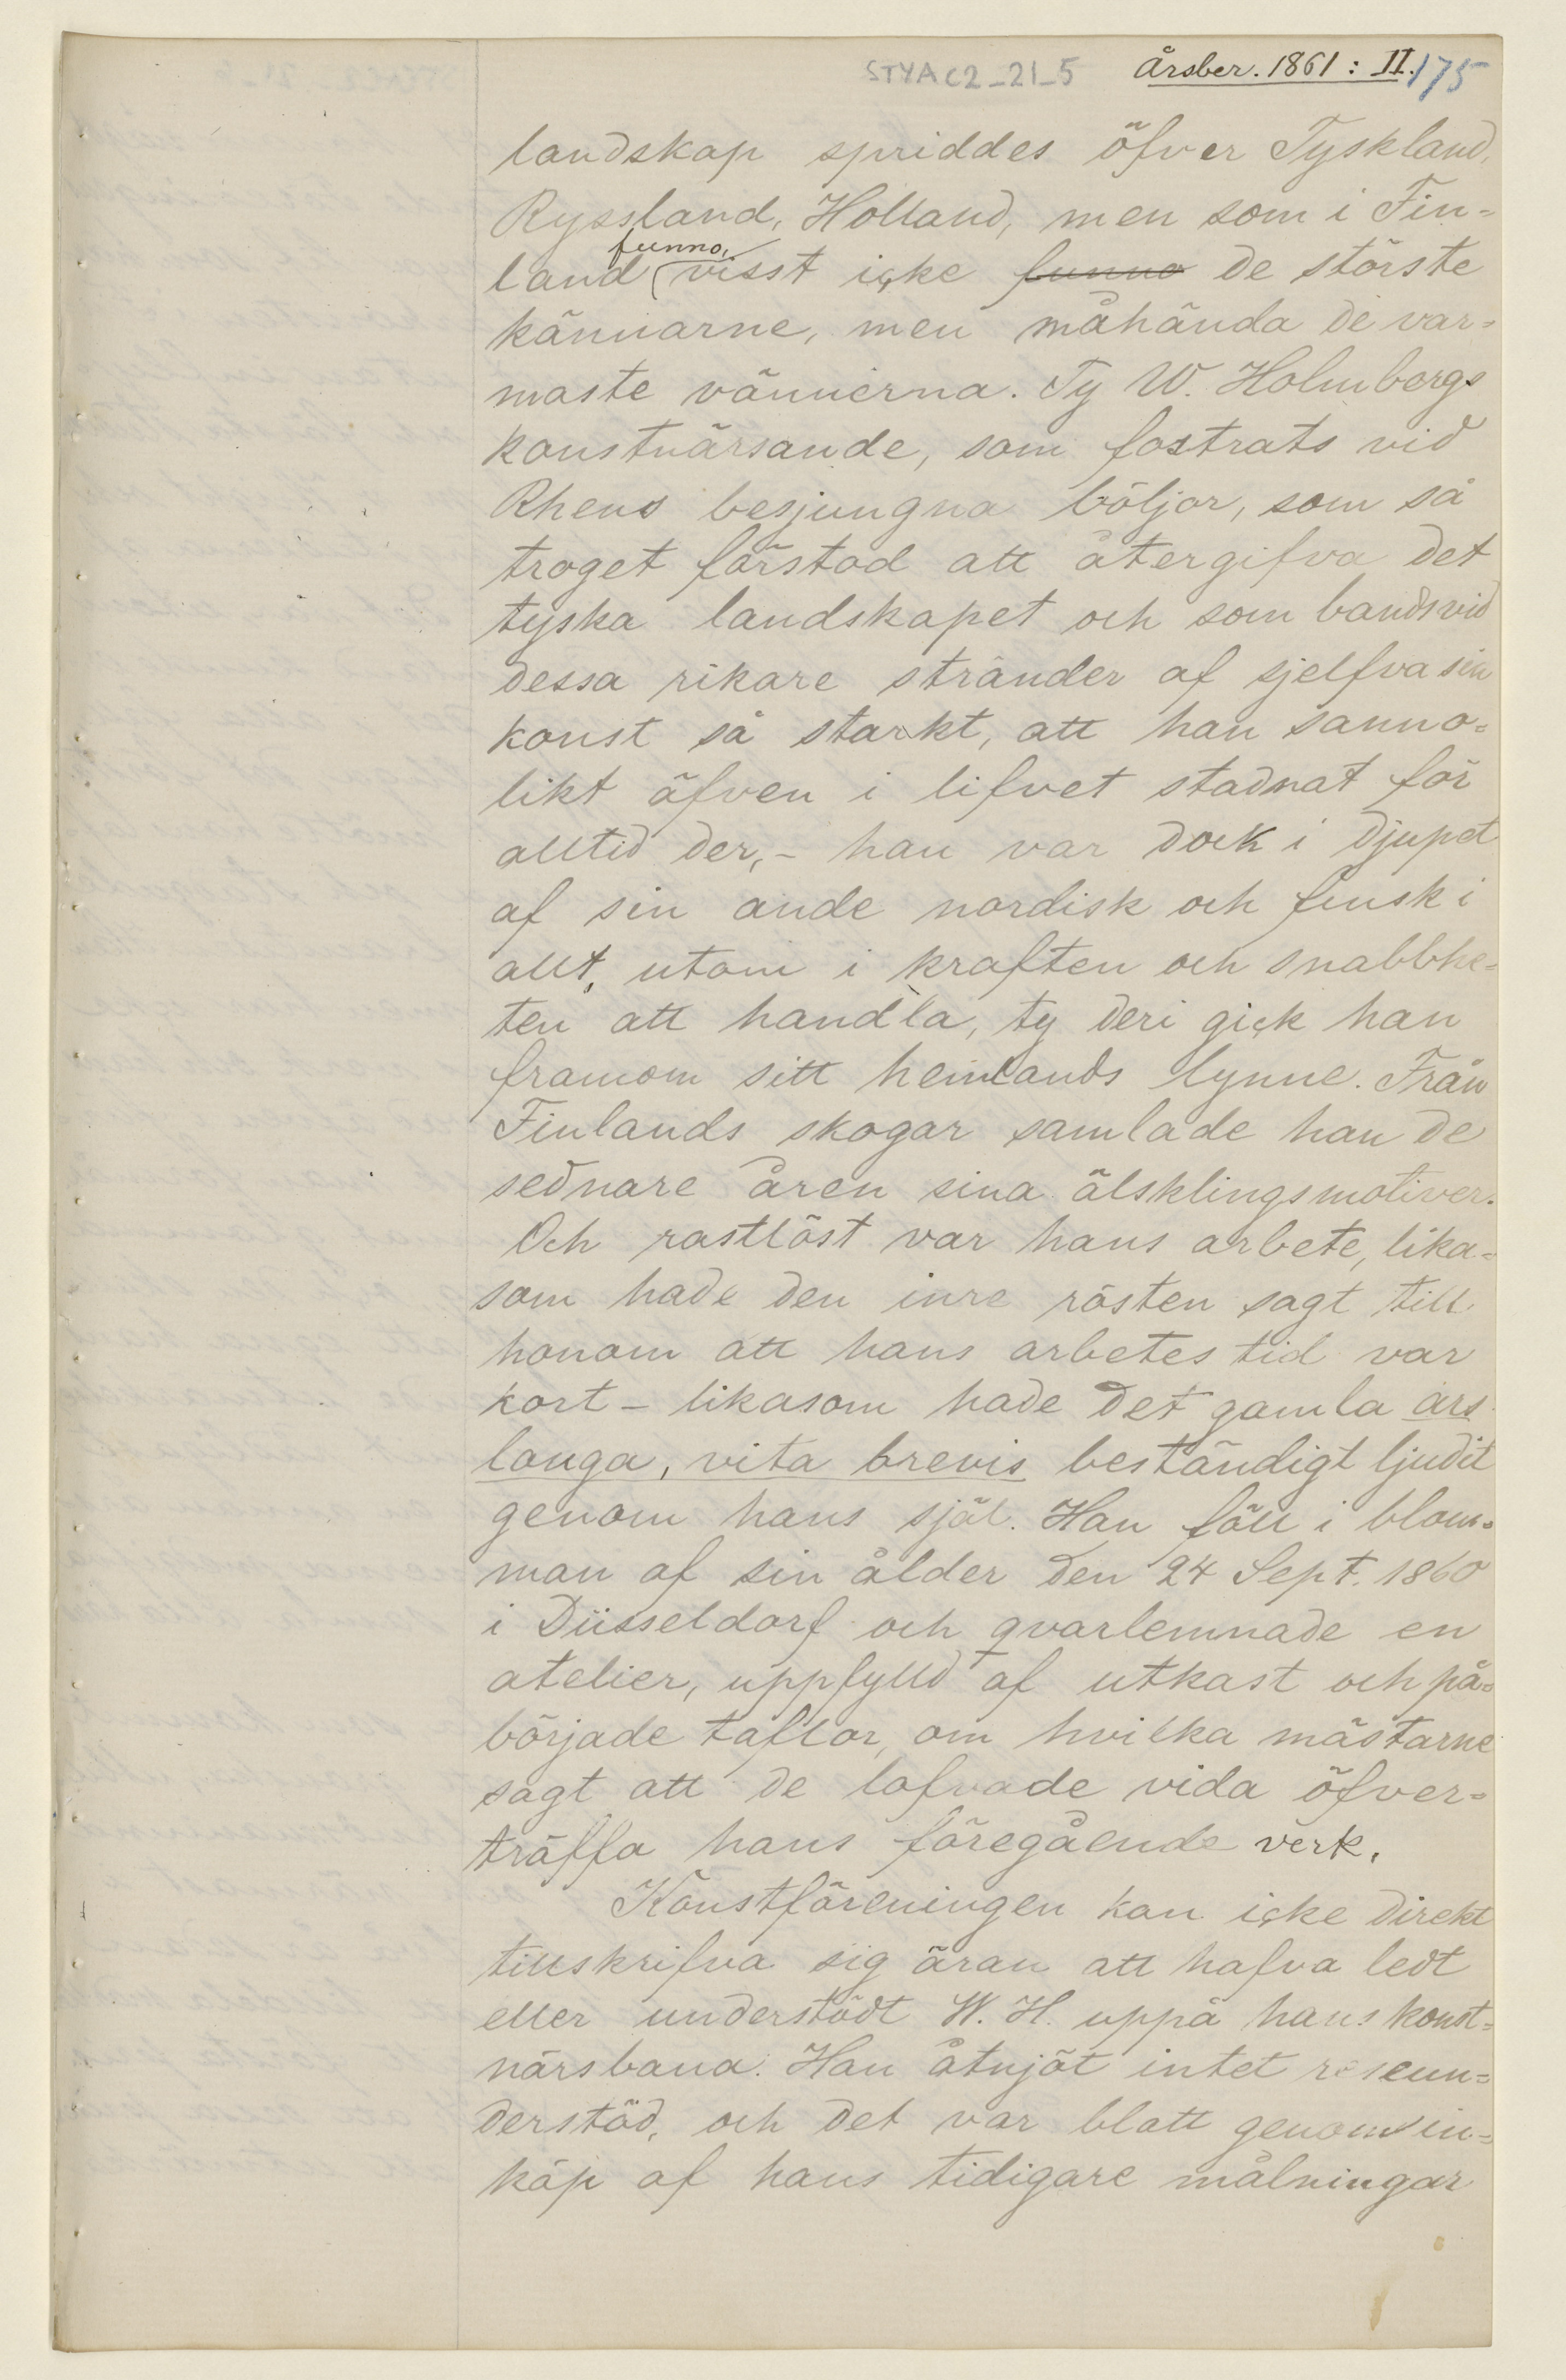 STYA C2_21_5 Årsber. 1861: II. 175
landskap spriddes öfver Tyskland,
Ryssland, Holland, men som i Fin=
funno,
land (visst icke funno de störste
kännarne, men måhända de var=
maste vännerna. Ty W. Holmbergs
konstnärsande, som fostrats vid
Rhens besjungna böljor, som så
troget förstod att återgifva det
tyska landskapet och som bands vid
dessa rikare stränder af sjelfva sin
konst så starkt, att han sanno=
likt äfven i lifvet stadnat för
alltid der, - han var dock i djupet
af sin ande nordisk och finsk i
allt, utom i kraften och snabbhe=
ten att handla, ty deri gick han
framom sitt hemlands lynne. Från
Finlands skogar samlade han de
sednare åren sina älsklingsmotiver.
Och rastlöst var hans arbete, lika=
som hade den inre rösten sagt till
honom att hans arbetes tid var
kort - likasom hade det gamla ars
longa, vita brevis beständigt ljudit
genom hans själ. Han föll i blom=
man af sin ålder den 24 Sept. 1860
i Düsseldorf och qvarlemnade en
atelier, uppfylld af utkast och på=
började taflor, om hvilka mästarne
sagt att de lofvade vida öfver=
träffa hans föregående verk.
Konstföreningen kan icke direkt
tillskrifva sig äran att hafva ledt
eller understödt W. H. uppå hans konst=
närsbana. Han åtnjöt intet reseun=
derstöd, och det var blott genom in=
köp af hans tidigare målningar